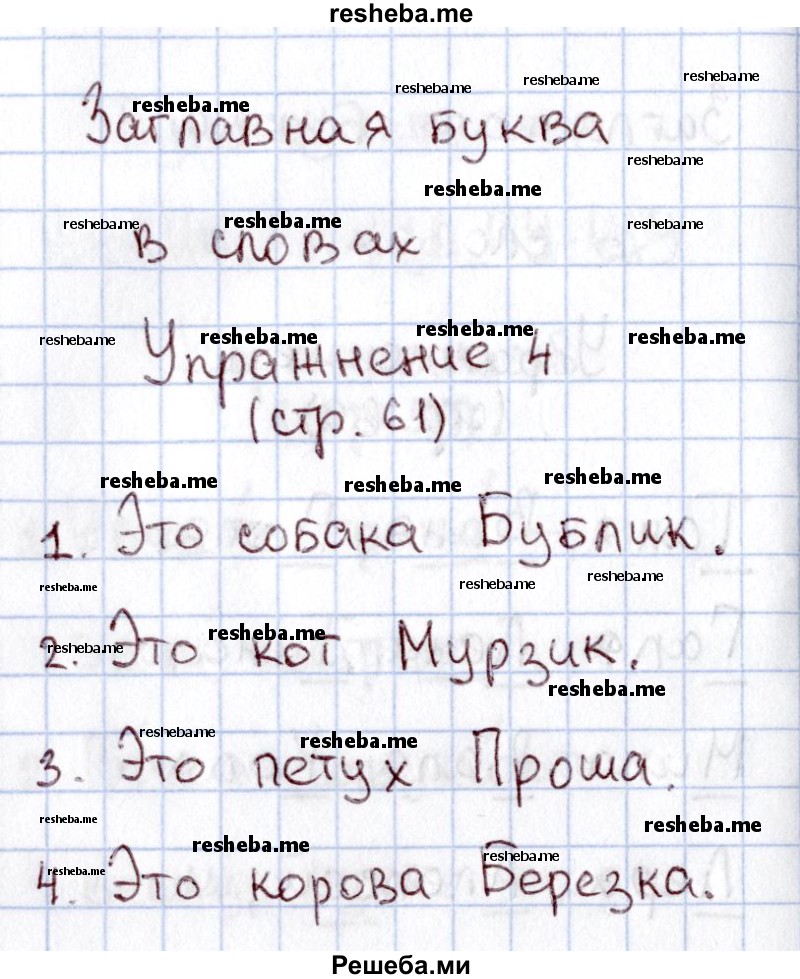 resheba.me
resheba.me resheba.me resheba.me
resheba.me
Заглавная буква
resheba.me
resheba.me
resheba.me resheba.me resheba.me
в словах
resheba.me resheba.me resheba.me resheba.me
Упражнение 4
(стр. 61)
resheba.me resheba.me resheba.me
1. Это собака Бублик.
resheba.me resheba.me resheba.me
resheba.me resheba.me
2. Это кот Мурзик.
resheba.me
resheba.me resheba.me
3. Это петух Проша.
resheba.me resheba.me
resheba.me resheba.me resheba.me
4. Это корова Березка.
Решеба.ми